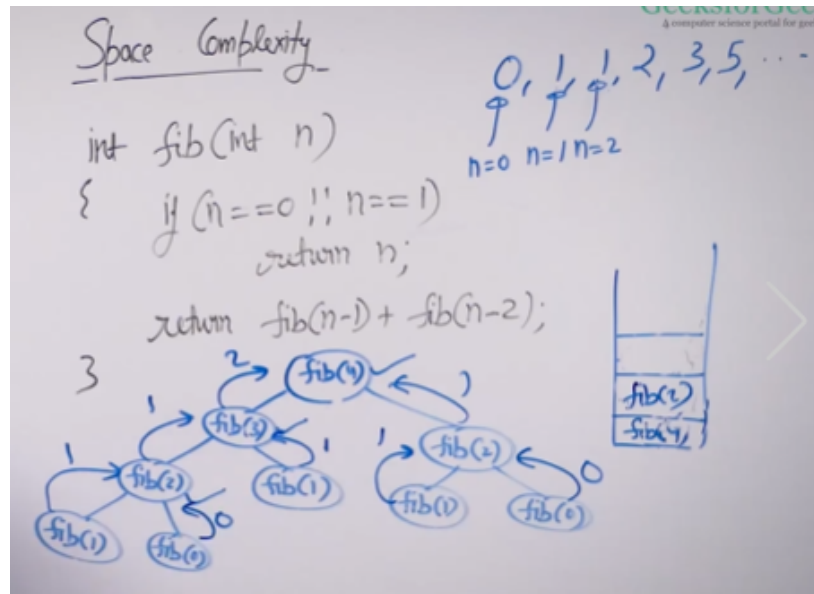 GeeksforGee
A computer science portal for gee
Space Complexity
0, 1, 1, 2, 3, 5, ...
n=0 n=1 n=2
int fib(int n)
{
if (n==0 || n==1)
return n;
return fib(n-1) + fib(n-2);
}
2
fib(4)
1
1
fib(3)
1
1
fib(2)
0
1
fib(2)
fib(1)
fib(1)
fib(0)
fib(1)
0
fib(0)
fib(2)
fib(4)